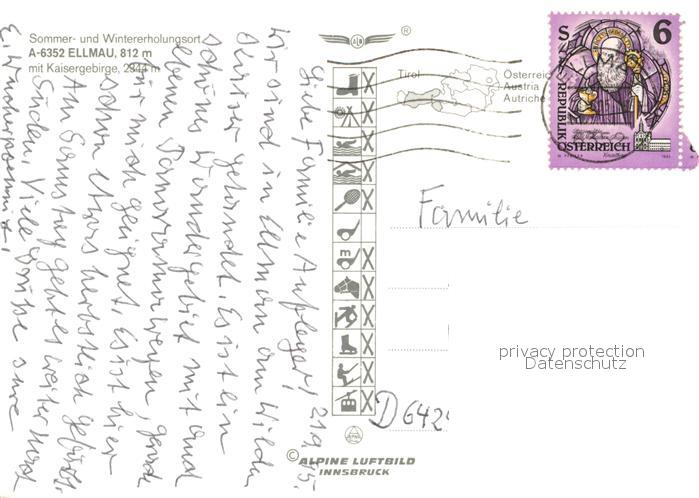 Sommer- und Wintererholungsort
A-6352 ELLMAU, 812 m
mit Kaisergebirge, 2344 m
Tirol
Österreich
Austria
Autriche
S 6
REPUBLIK
ÖSTERREICH
Liebe Familie 21.9.95.
Wir sind in Ellmau am Wilden
Kaiser gelandet. Es ist ein
schönes Wandergebiet mit
ebenen Panoramawegen, gerade
für mich geeignet. Es ist hier
schon etwas herbstlich gefärbt.
Am Samstag geht es weiter Richt.
Süden. Viele Grüße Eure
E.
Familie
privacy protection
Datenschutz
D 642
© ALPINE LUFTBILD
INNSBRUCK